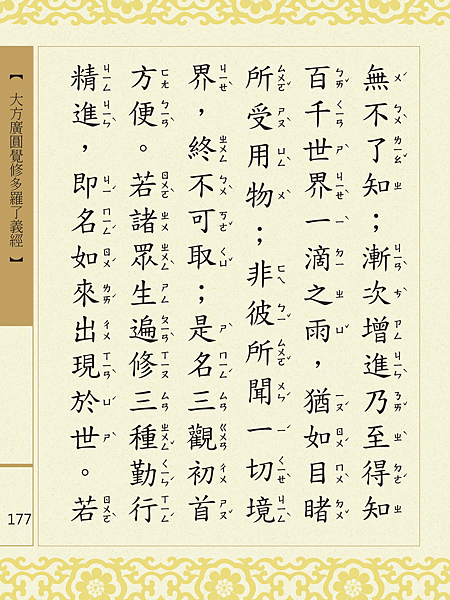 無不了知；漸次增進乃至得知
百千世界一滴之雨，猶如目睹
所受用物；非彼所聞一切境
界，終不可取；是名三觀初首
方便。若諸眾生遍修三種勤行
精進，即名如來出現於世。若
【大方廣圓覺修多羅了義經】
177